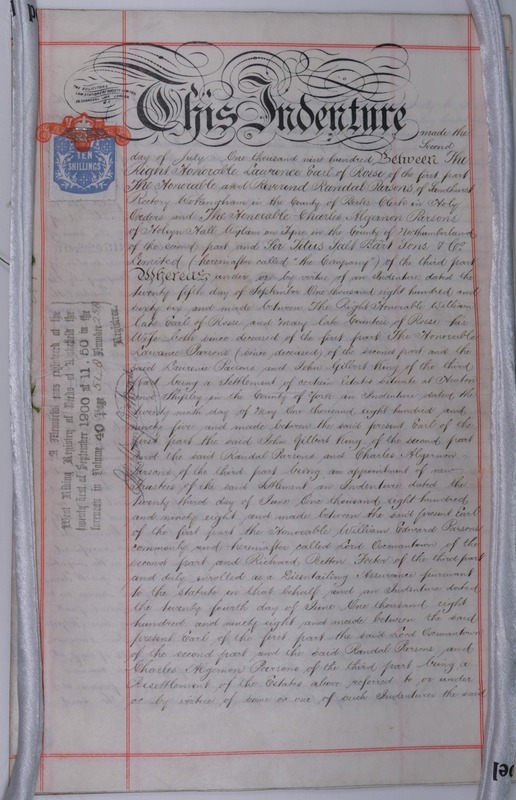 This Indenture made the Second
day of July One thousand nine hundred Between The
Right Honorable Lawrence Earl of Rosse of the first part
The Honorable and Reverend Randal Parsons of Sandhurst
Rectory Wokingham in the County of Berks Clerk in Holy
Orders and The Honorable Charles Algernon Parsons
of Holeyn Hall Wylam on Tyne in the County of Northumberland
of the second part and Sir Titus Salt Bart Sons & Co
Limited (hereinafter called "the Company") of the third part
Whereas under or by virtue of an Indenture dated the
twenty fifth day of September One thousand eight hundred and
sixty six and made between The Right Honorable William
late Earl of Rosse and Mary late Countess of Rosse his
Wife both since deceased of the first part The Honorable
Lawrence Parsons (since deceased) of the second part and the
said Lawrence Parsons and John Gilbert King of the third
part being a Settlement of certain Estates situate at Heaton
and Shipley in the County of York an Indenture dated the
twenty ninth day of May One thousand eight hundred and
ninety five and made between the said present Earl of the
first part the said John Gilbert King of the second part
and the said Randal Parsons and Charles Algernon
Parsons of the third part being an appointment of new
trustees of the said Settlement an Indenture dated the
twenty third day of June One thousand eight hundred
and ninety eight and made between the said present Earl
of the first part the Honorable William Edward Parsons
commonly and hereinafter called Lord Oxmantown of the
second part and Richard Betton Foster of the third part
and duly enrolled as a Disentailing Assurance pursuant
to the statute in that behalf and an Indenture dated
the twenty fourth day of June One thousand eight
hundred and ninety eight and made between the said
present Earl of the first part the said Lord Oxmantown
of the second part and the said Randal Parsons and
Charles Algernon Parsons of the third part being a
Resettlement of the Estates above referred to or under
or by virtue of some or one of such Indentures the said
TEN
SHILLINGS
A Memorial was registered at the
West Riding Registry of Deeds at Wakefield the
twenty first of September 1900 at 11.50 in the
forenoon in Volume 40 Page 578 Number
Registrar.